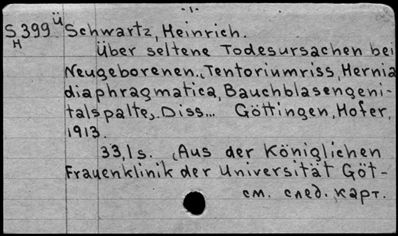 -1-
S399ü Schwartz, Heinrich.
H
Über seltene Todesursachen bei
Neugeborenen. „Tentoriumriss, Hernia
diaphragmatica, Bauchblasengeni-
talspalte„. Diss... Göttingen, Hofer,
1913.
33,1 s. (Aus der Königlichen
Frauenklinik der Universität Göt-
см. след. карт.